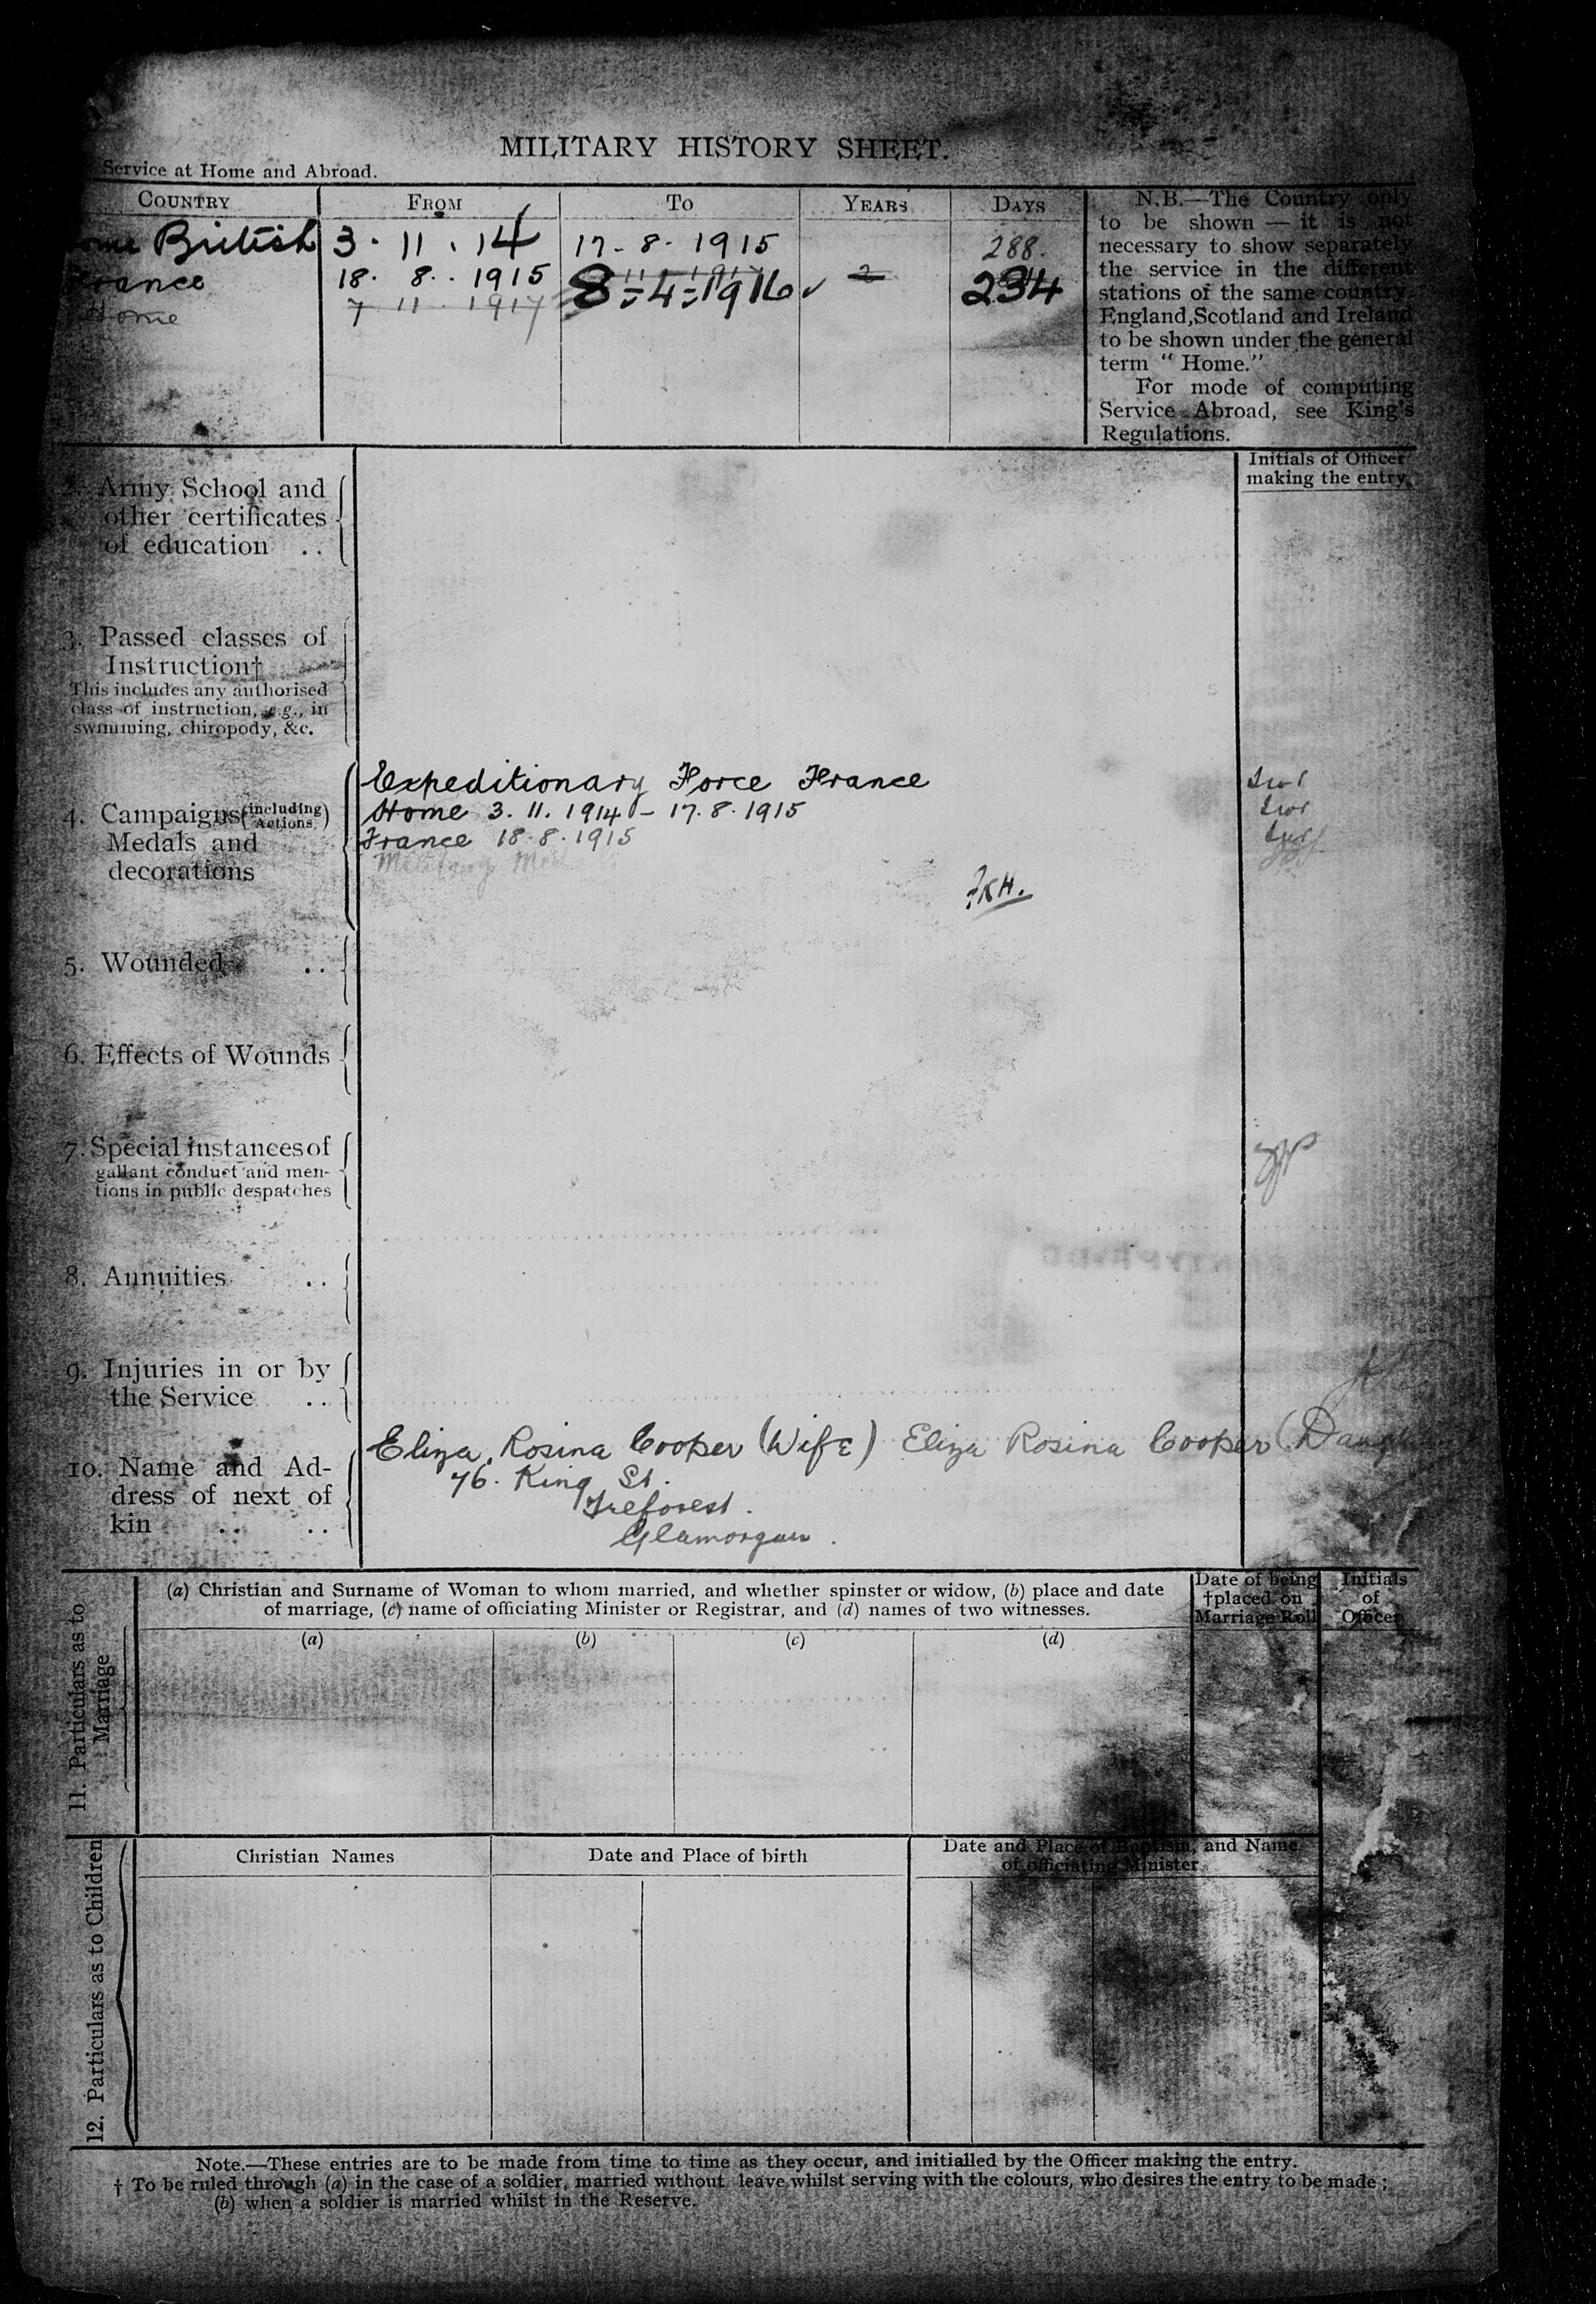 MILITARY HISTORY SHEET.
Service at Home and Abroad.
COUNTRY FROM TO YEARS DAYS
British 3 · 11 · 14 17 - 8 - 1915 288.
France 18 · 8 · 1915 8 - 4 - 1916 2 234
Home 7 11 1917
N.B.—The Country only
to be shown — it is not
necessary to show separately
the service in the different
stations of the same country.
England, Scotland and Ireland
to be shown under the general
term “ Home.”
For mode of computing
Service Abroad, see King's
Regulations.
Initials of Officer
making the entry.
2. Army School and
other certificates
of education ..
3. Passed classes of
Instruction†
This includes any authorised
class of instruction, e.g., in
swimming, chiropody, &c.
4. Campaigns (including Actions)
Medals and
decorations
Expeditionary Force France
Home 3. 11. 1914 - 17. 8. 1915
France 18 · 8 · 1915
Military
5. Wounded ..
6. Effects of Wounds
7. Special instances of
gallant conduct and men-
tions in public despatches
8. Annuities ..
9. Injuries in or by
the Service ..
10. Name and Ad-
dress of next of
kin .. ..
Eliza Rosina Cooper (Wife) Eliza Rosina Cooper
76. King St.
Treforest.
Glamorgan.
11. Particulars as to
Marriage
(a) Christian and Surname of Woman to whom married, and whether spinster or widow, (b) place and date
of marriage, (c) name of officiating Minister or Registrar, and (d) names of two witnesses.
Date of being
†placed on
Marriage Roll
Initials
of
Officer
(a) (b) (c) (d)
12. Particulars as to Children
Christian Names Date and Place of birth
Date and Place of Baptism, and Name
of officiating Minister
Note.—These entries are to be made from time to time as they occur, and initialled by the Officer making the entry.
† To be ruled through (a) in the case of a soldier, married without leave whilst serving with the colours, who desires the entry to be made ;
(b) when a soldier is married whilst in the Reserve.